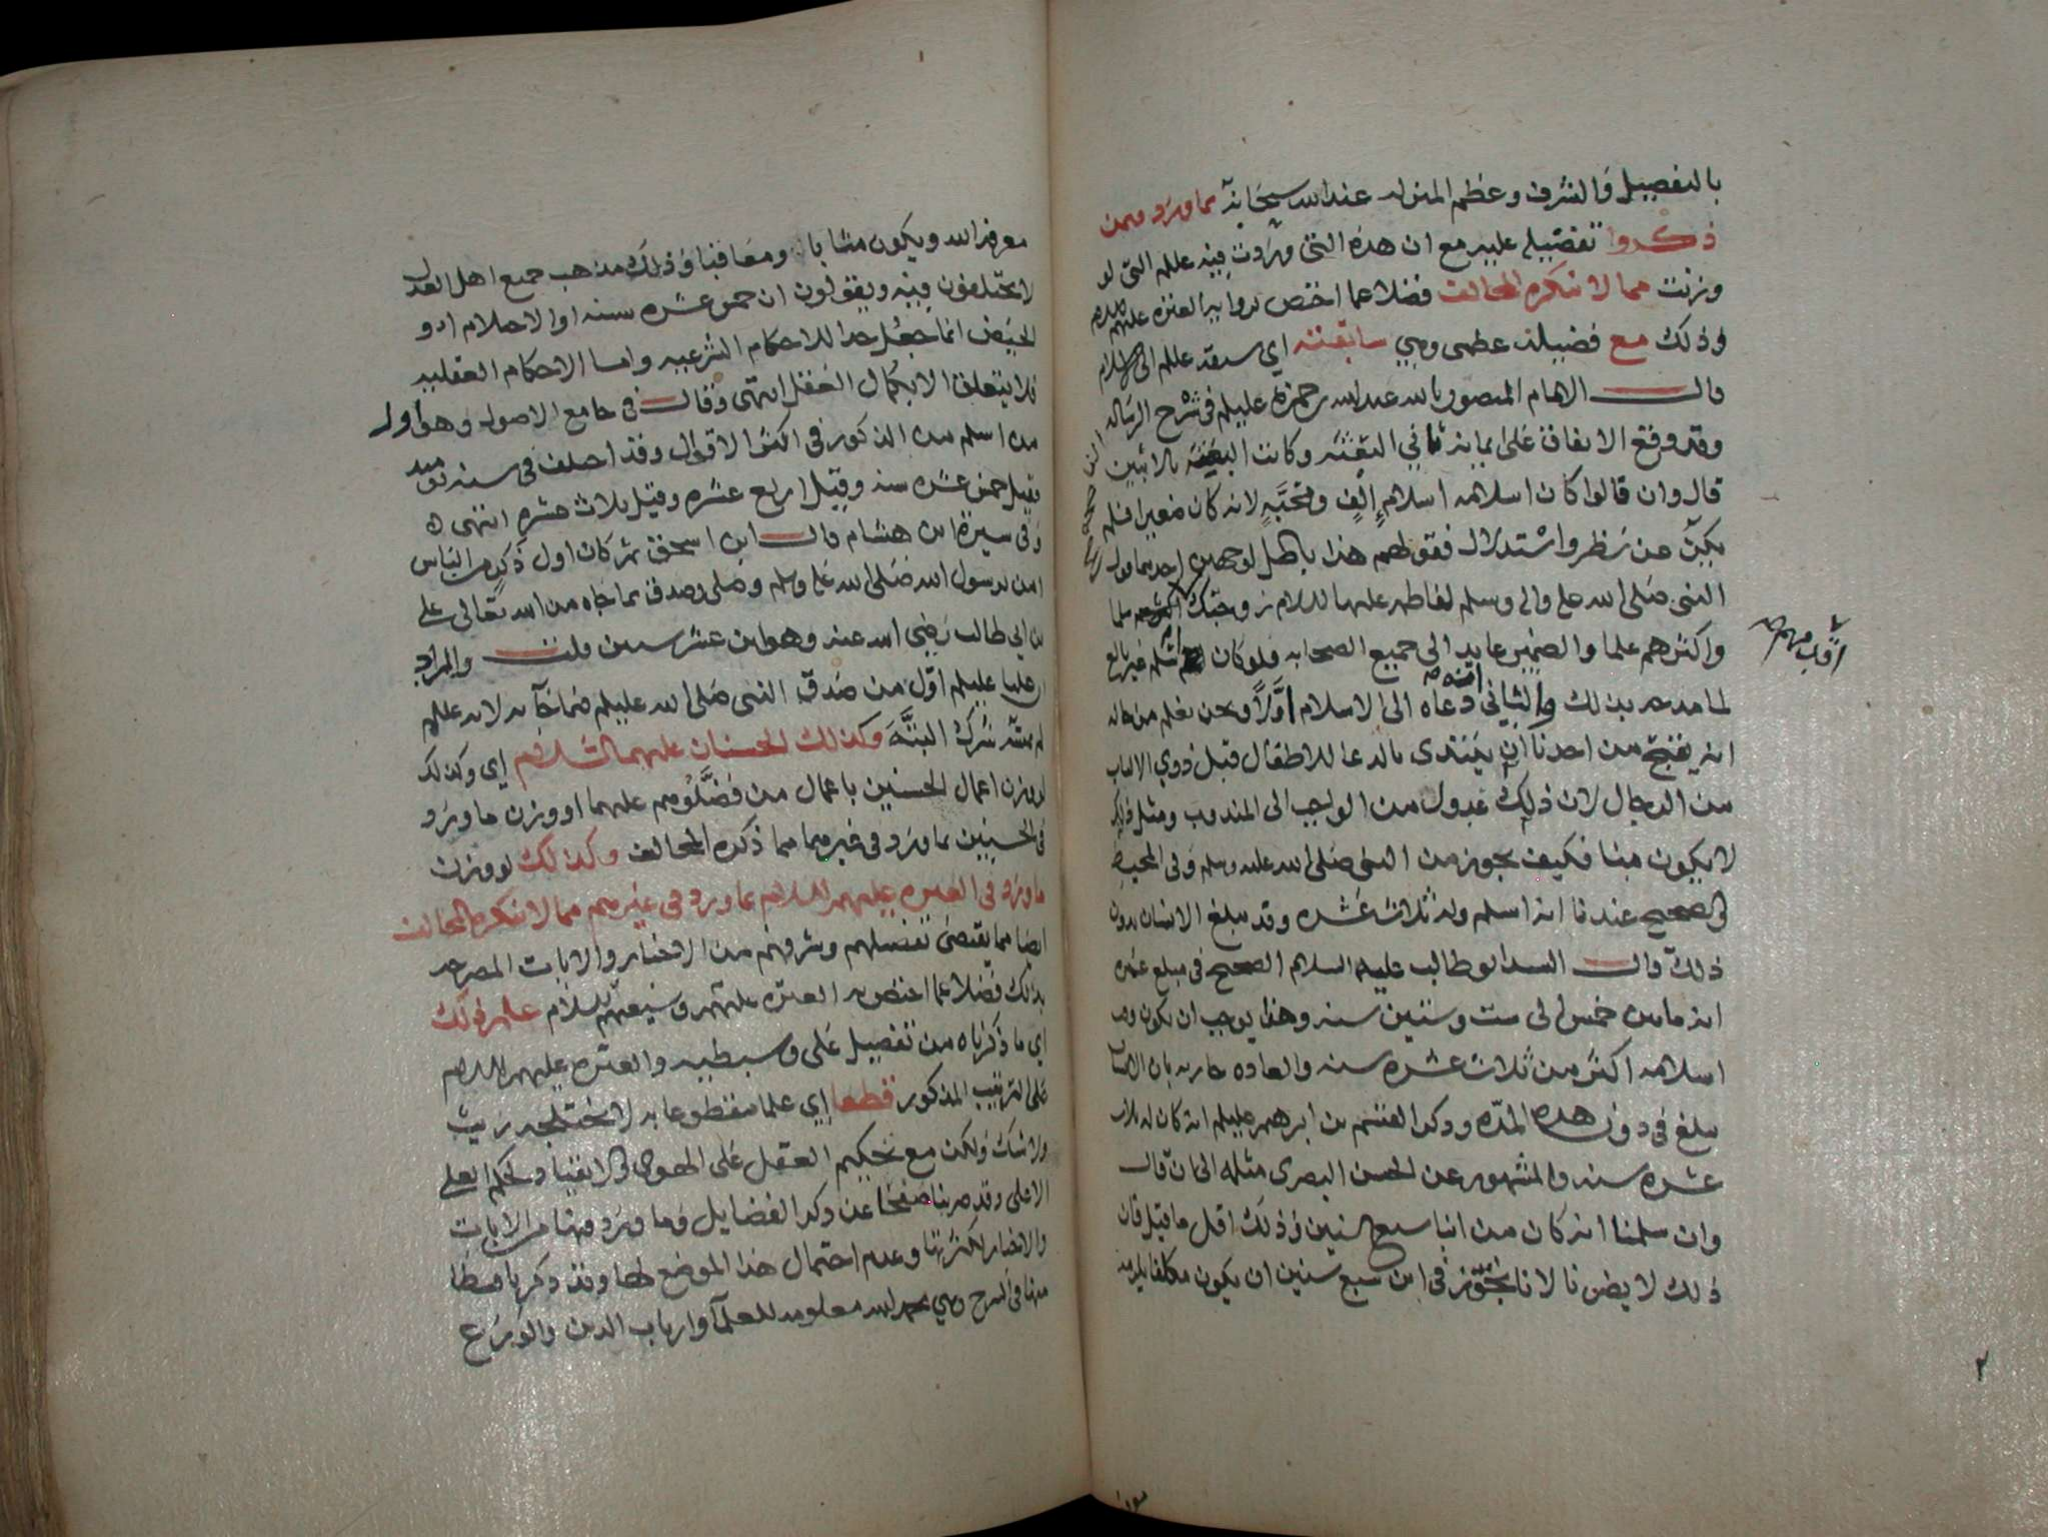 بالتفضيل والشرف وعظم المنزلة عند الله سبحانه بما ورد فيمن
ذكروا تفضيله عليه مع ان هذه التي وردت فيه عللم التي لو
وزنت مما لا ينكره المخالف فضلا عما اختص بروايته العترة عليهم السلام
وذلك مع فضيلة عظمى وهي سابقته اي سبقه عللم الى الاسلام
قال الامام المنصور بالله عبد الله بن حمزة عليلم في شرح الرسالة
وقد وقع الاتفاق على ايمانه ثاني البعثة وكانت البعثة بالاثنين
قال وان قالوا كان اسلامه اسلام إلف ومحبة لانه كان صغيرا فلم
يكن عن نظر واستدلال فقولهم هذا باطل لوجهين احدهما قول
النبي صلى الله عليه واله وسلم لفاطمة عليها السلام زوجتك سلما
واكثرهم علما والضمير عايد الى جميع الصحابة فلو كان اسلم غير بالغ
لما مدحه بذلك والثاني انه دعاه الى الاسلام اولا ونحن نعلم من حاله
انه يقبح من احدنا ان يبتدي بالدعا للاطفال قبل ذوي الالباب
من الرجال لان ذلك عدول من الواجب الى المندوب ومثل ذلك
لا يكون منا فكيف يجوز من النبي صلى الله عليه وسلم وفي المحيط
الصحيح عندنا انه اسلم وله ثلاث عشره وقد يبلغ الانسان بدون
ذلك قال السيد ابو طالب عليه السلام الصحيح في مبلغ عمره
انه ما بين خمس الى ست وستين سنه وهذا يوجب ان يكون وقت
اسلامه اكثر من ثلاث عشره سنه والعاده جاريه بان الانسان
يبلغ في دون هذه المده وذكر القسم بن ابرهيم عليلم انه كان له ثلاث
عشره سنه والمشهور عن الحسن البصري مثله الى ان قال
وان سلمنا انه كان من ابنا سبع سنين وذلك اقل ما قيل فان
ذلك لا يضرنا لانا نجوز في ابن سبع سنين ان يكون مكلفا يلزمه
اقدمهم
معرفة الله ويكون مثابا ومعاقبا وذلك مذهب جميع اهل العدل
لا يختلفون فيه ويقولون ان خمس عشره سنه او الاحلام او
الحيض انما جعل حدا للاحكام الشرعيه واما الاحكام العقليه
فلا يتعلق الا بكمال العقل انتهى وقال في جامع الاصول وهو اول
من اسلم من الذكور في اكثر الاقوال وقد اختلف في سنه يوميد
فقيل خمس عشره سنه وقيل اربع عشره وقيل ثلاث عشره انتهى ه
وفي سيرة ابن هشام قال ابن اسحق ثم كان اول ذكر من الناس
امن برسول الله صلى الله عليه وسلم وصلى وصدق بما جاه من الله تعالى علي
بن ابي طالب رضي الله عنه وهو ابن عشر سنين قلت والمراد
ان عليا عليلم اول من صدق النبي صلى الله عليلم فيما جآ به لانه عللم
لم يمسه شرك البتة وكذلك الحسنان عليهما السلام اي وكذلك
لو وزن اعمال الحسنين باعمال من فضلوهم عليهما او وزن ما ورد
في الحسنين بما ورد في غيرهما مما ذكره المخالف وكذلك لو وزن
ما ورد في العتره عليهم السلام بما ورد في غيرهم مما لا ينكره المخالف
ايضا مما يقتضي تفضيلهم وشرفهم من الاخبار والايات المصرحه
بذلك فضلا عما اختص به العتره عليهم وشيعتهم السلام علم ذلك
اي ما ذكرناه من تفضيل علي وسبطيه والعتره عليهم السلام
على الترتيب المذكور قطعا اي علما مقطوعا به لا يختلجه ريب
ولا شك ولكن مع تحكيم العقل على الهوى
الاعلى وقد ضربنا صفحا عن ذكر الفضايل وما ورد فيها من الايات
والاخبار لكثرتها وعدم احتمال هذا الموضع لها وقد ذكرنا قسطا
منها في الشرح وهي بحمد الله معلومه للعلمآ وارباب الدين والورع
٢